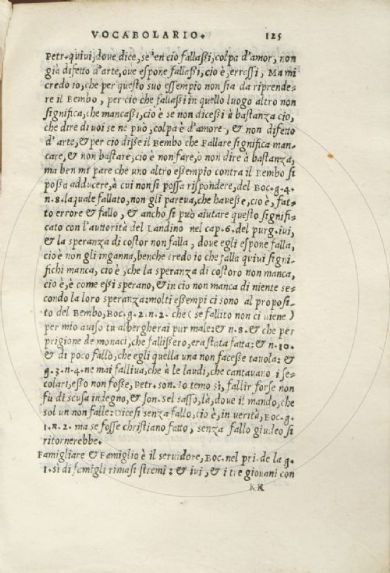 VOCABOLARIO. 125
Petr. quivi, dove dice, se'en cio fallassi, colpa d'amor, non
gia difetto d'arte, ove espone fallassi, cio è, errassi, Ma mi
credo io, che per questo suo essempio non sia da riprende-
re il Bembo, per cio che fallassi in quello luogo altro non
significa, che mancassi, cio è se non dicessi à bastanza cio,
che dire di voi se ne può, colpa è d'amore, & non difetto
d'arte, & per cio disse il Bembo che Fallare significa man-
care, & non bastare, cio è non fare, ò non dire à bastanza,
ma ben mi pare che uno altro essempio contra il Bembo si
possa addurre, à cui non si possa rispondere, del Boc. g. 4.
n. 8. laquale fallato, non gli pareva, che havesse, cio è, fat-
to errore & fallo, & anchо si può aiutare questo signifi-
cato con l'autorità del Landino nel cap. 6. del purg. ivi,
& la speranza di costor non falla, dove egli espone falla,
cio è non gli inganna, benche credo io che falla quivi signi-
fichi manca, cio è, che la speranza di costoro non manca,
cio è, è come essi sperano, & in cio non manca di niente se-
condo la loro speranza: molti essempi ci sono al proposi-
to del Bembo, Boc. g. 2. n. 2. che (se fallito non ci viene)
per mio aviso tu albergherai pur male: & n. 8. & che per
prigione de monaci, che fallissero, era stata fatta: & n. 10.
& di poco fallò, che egli quella una non facesse tavola: &
g. 3. n. 4. ne mai falliva, che à le laudi, che cantavano i se-
colari, esso non fosse, Petr. son. Io temo si, fallir forse non
fu di scusa indegno, & son. Sel sasso, là, dove il mando, che
sol un non falle: Dicesi senza fallo, cio è, in verità, Boc. g.
1. n. 2. ma se fosse christiano fatto, senza fallo giudeo si
ritornerebbe.
Famigliare & Famiglio è il servidore, Boc. nel pri. de la g.
1. si di famigli rimasi stremi: & ivi, & i tre giovani con
KK